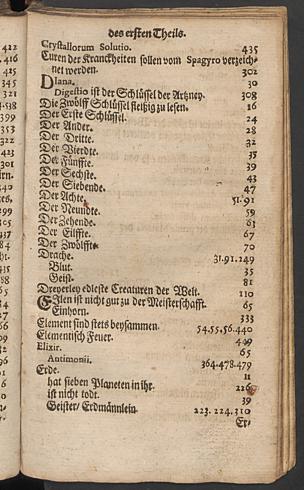 des ersten Theils.
Crystallorum Solutio. 435
Curen der Kranckheiten sollen vom Spagyro verzeich-
net werden. 302
Diana. 30
Digestio ist der Schlüssel der Artzney. 308
Die Zwölff Schlüssel fleissig zu lesen. 16
Der Erste Schlüssel. 24
Der Ander. 28
Der Dritte. 32
Der Vierdte. 35
Der Fünffte. 39
Der Sechste. 43
Der Siebende. 47
Der Achte. 51.91
Der Neundte. 59
Der Zehende. 63
Der Eilffte. 67
Der Zwölffte. 70
Drache. 31.91.149
Blut. 35
Geist. 81
Dreyerley edleste Creaturen der Welt. 110
Eylen ist nicht gut zu der Meisterschafft. 65
Einhorn. 333
Element sind stets beysammen. 54.55.56.440
Elementisch Feuer. 449
Elixir. 65
Antimonii. 364.478.479
Erde. 11
hat sieben Planeten in ihr. 226
ist nicht todt. 39
Geister/ Erdmännlein. 223.224.310
Er/
422
416
425
345
321
538
399
353
322
423
301
199
105
437
84